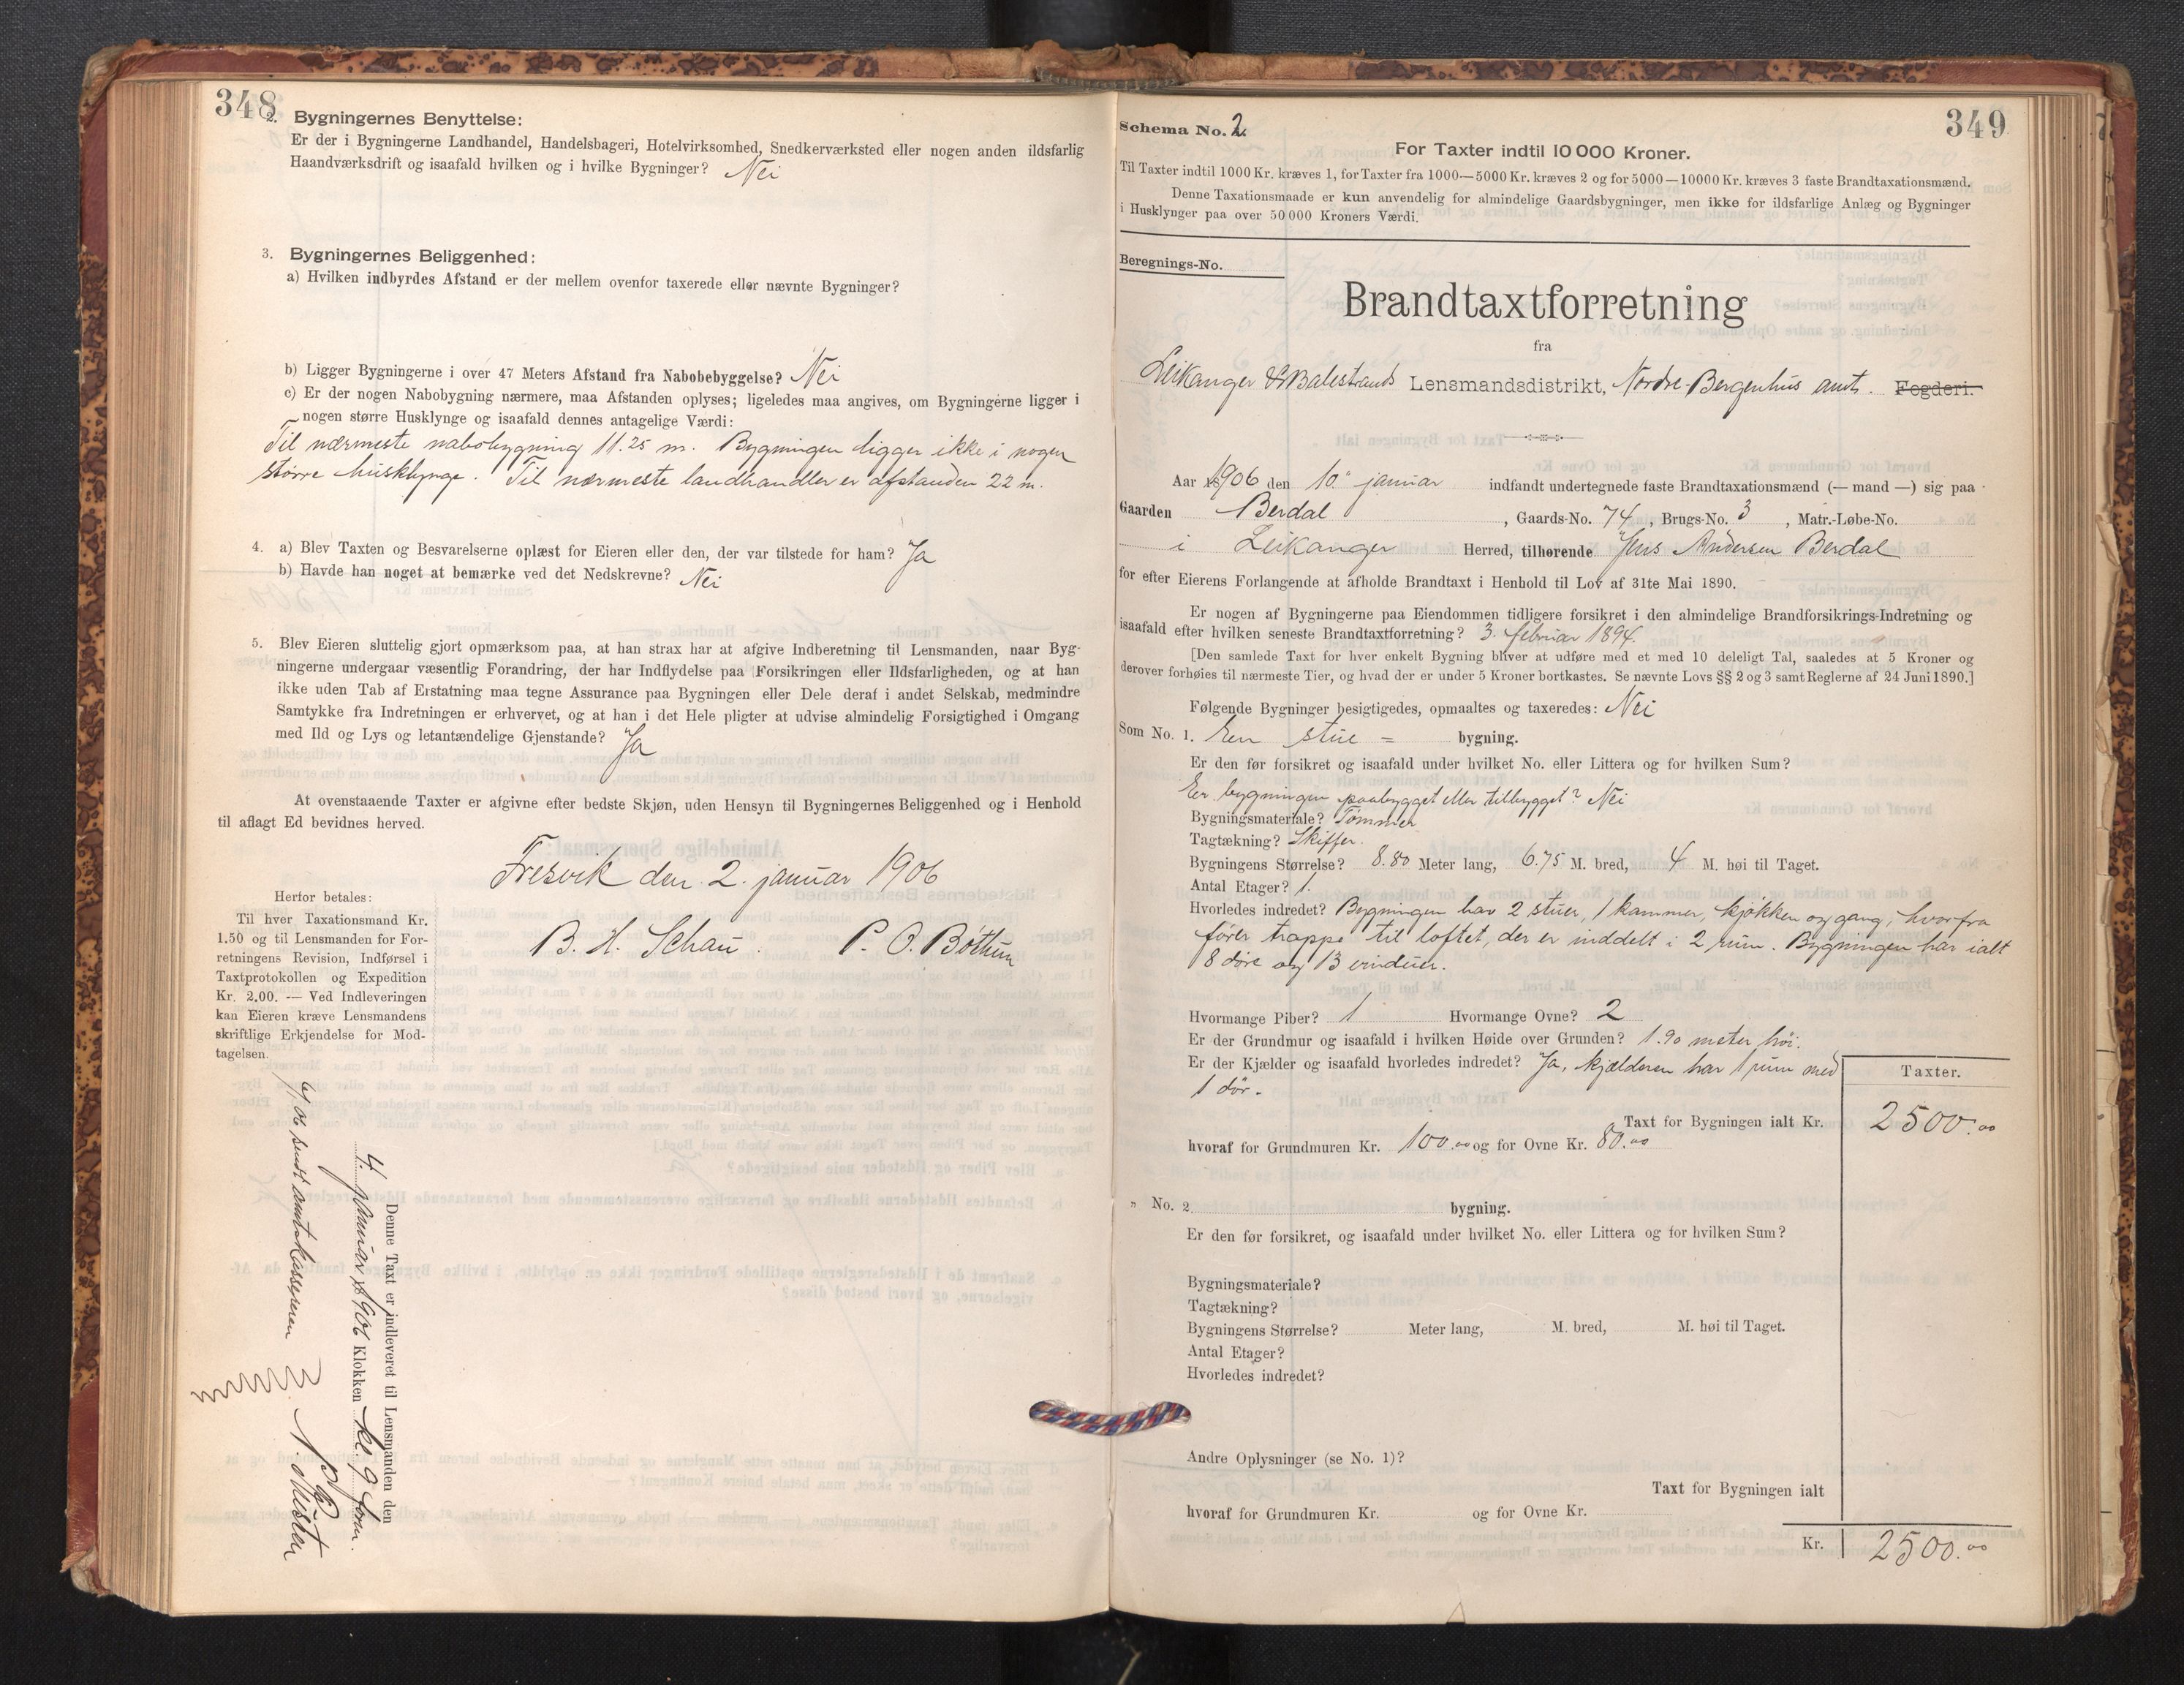 348
2. Bygningernes Benyttelse:
Er der i Bygningerne Landhandel, Handelsbageri, Hotelvirksomhed, Snedkerværksted eller nogen anden ildsfarlig
Haandværksdrift og isaafald hvilken og i hvilke Bygninger? Nei
3. Bygningernes Beliggenhed:
a) Hvilken indbyrdes Afstand er der mellem ovenfor taxerede eller nævnte Bygninger?
b) Ligger Bygningerne i over 47 Meters Afstand fra Nabobebyggelse? Nei
c) Er der nogen Nabobygning nærmere, maa Afstanden oplyses; ligeledes maa angives, om Bygningerne ligger i
nogen større Husklynge og isaafald dennes antagelige Værdi:
Til nærmeste nabobygning 11.25 m. Bygningen ligger ikke i nogen
større husklynge. Til nærmeste landhandler er afstanden 22 m.
4. a) Blev Taxten og Besvarelserne oplæst for Eieren eller den, der var tilstede for ham? Ja
b) Havde han noget at bemærke ved det Nedskrevne? Nei
5. Blev Eieren sluttelig gjort opmærksom paa, at han strax har at afgive Indberetning til Lensmanden, naar Byg-
ningerne undergaar væsentlig Forandring, der har Indflydelse paa Forsikringen eller Ildsfarligheden, og at han
ikke uden Tab af Erstatning maa tegne Assurance paa Bygningen eller Dele deraf i andet Selskab, medmindre
Samtykke fra Indretningen er erhvervet, og at han i det Hele pligter at udvise almindelig Forsigtighed i Omgang
med Ild og Lys og letantændelige Gjenstande? Ja
At ovenstaaende Taxter er afgivne efter bedste Skjøn, uden Hensyn til Bygningernes Beliggenhed og i Henhold
til aflagt Ed bevidnes herved.
Fresvik den 2. januar 1906
B. H. Schau. P. O. Bøthun
Herfor betales:
Til hver Taxationsmand Kr.
1.50 og til Lensmanden for For-
retningens Revision, Indførsel i
Taxtprotokollen og Expedition
Kr. 2.00. — Ved Indleveringen
kan Eieren kræve Lensmandens
skriftlige Erkjendelse for Mod-
tagelsen.
Denne Taxt er indleveret til Lensmanden den
4. januar 1906 Klokken kl. 9 fom.
sendt amtskassereren
349
Schema No. 2.
For Taxter indtil 10 000 Kroner.
Til Taxter indtil 1000 Kr. kræves 1, for Taxter fra 1000—5000 Kr. kræves 2 og for 5000—10000 Kr. kræves 3 faste Brandtaxationsmænd.
Denne Taxationsmaade er kun anvendelig for almindelige Gaardsbygninger, men ikke for ildsfarlige Anlæg og Bygninger
i Husklynger paa over 50 000 Kroners Værdi.
Beregnings-No.
Brandtaxtforretning
fra
Leikanger & Balestrands Lensmandsdistrikt, Nordre Bergenhus amt. Fogderi.
Aar 1906 den 10" januar indfandt undertegnede faste Brandtaxationsmænd (— mand —) sig paa
Gaarden Berdal, Gaards-No. 74, Brugs-No. 3, Matr.-Løbe-No.
i Leikanger Herred, tilhørende Jens Andersen Berdal
for efter Eierens Forlangende at afholde Brandtaxt i Henhold til Lov af 31te Mai 1890.
Er nogen af Bygningerne paa Eiendommen tidligere forsikret i den almindelige Brandforsikrings-Indretning og
isaafald efter hvilken seneste Brandtaxtforretning? 3. februar 1894.
[Den samlede Taxt for hver enkelt Bygning bliver at udføre med et med 10 deleligt Tal, saaledes at 5 Kroner og
derover forhøies til nærmeste Tier, og hvad der er under 5 Kroner bortkastes. Se nævnte Lovs §§ 2 og 3 samt Reglerne af 24 Juni 1890.]
Følgende Bygninger besigtigedes, opmaaltes og taxeredes: Nei
Som No. 1. En stue = bygning.
Er den før forsikret og isaafald under hvilket No. eller Littera og for hvilken Sum?
Er bygningen paabygget eller tilbygget? Nei
Bygningsmateriale? Tømmer
Tagtækning? Skiffer.
Bygningens Størrelse? 8.80 Meter lang, 6.75 M. bred, 4 M. høi til Taget.
Antal Etager? 1.
Hvorledes indredet? Bygningen har 2 stuer, 1 kammer, kjøkken og gang, hvorfra
fører trappe til loftet, der er inddelt i 2 rum. Bygningen har ialt
8 døre og 13 vinduer.
Hvormange Piber? 1 Hvormange Ovne? 2
Er der Grundmur og isaafald i hvilken Høide over Grunden? 1.90 meter høi.
Er der Kjælder og isaafald hvorledes indredet? Ja, kjælderen har 1 rum med
1 dør.
Taxter.
Taxt for Bygningen ialt Kr. 2500.00
hvoraf for Grundmuren Kr. 100.00 og for Ovne Kr. 80.00
" No. 2. bygning.
Er den før forsikret, og isaafald under hvilket No. eller Littera og for hvilken Sum?
Bygningsmateriale?
Tagtækning?
Bygningens Størrelse? Meter lang, M. bred, M. høi til Taget.
Antal Etager?
Hvorledes indredet?
Andre Oplysninger (se No. 1)?
Taxt for Bygningen ialt
hvoraf for Grundmuren Kr. og for Ovne Kr.
Kr. 2500.00